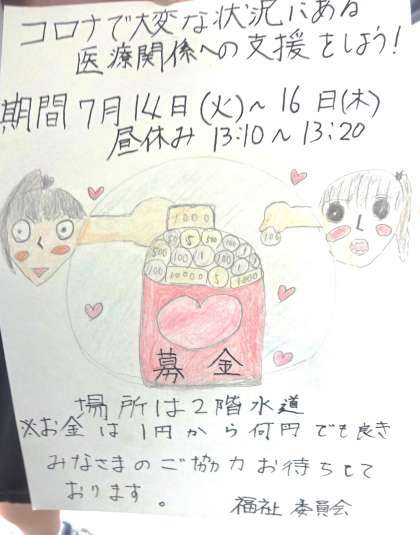 コロナで大変な状況にある
医療関係への支援をしよう!
期間 7月14日(火)~16日(木)
昼休み 13:10~13:20
1000
50 5 500 100 1
500 100 1 100
100 10000 5 1000
100
募金
場所は2階水道
※お金は1円から何円でも良き
みなさまのご協力お待ちして
おります。
福祉委員会